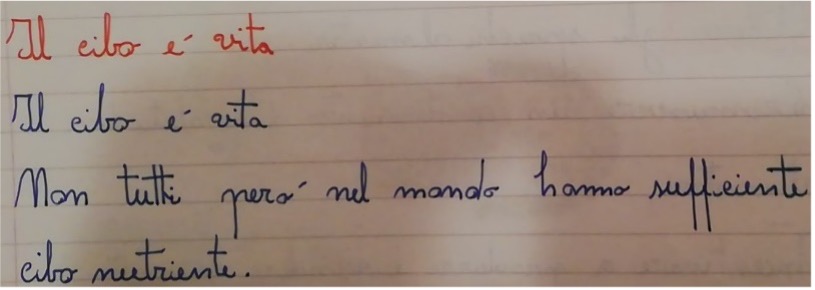 Il cibo é vita
Il cibo é vita
Non tutti peró nel mondo hanno sufficiente
cibo nutriente.